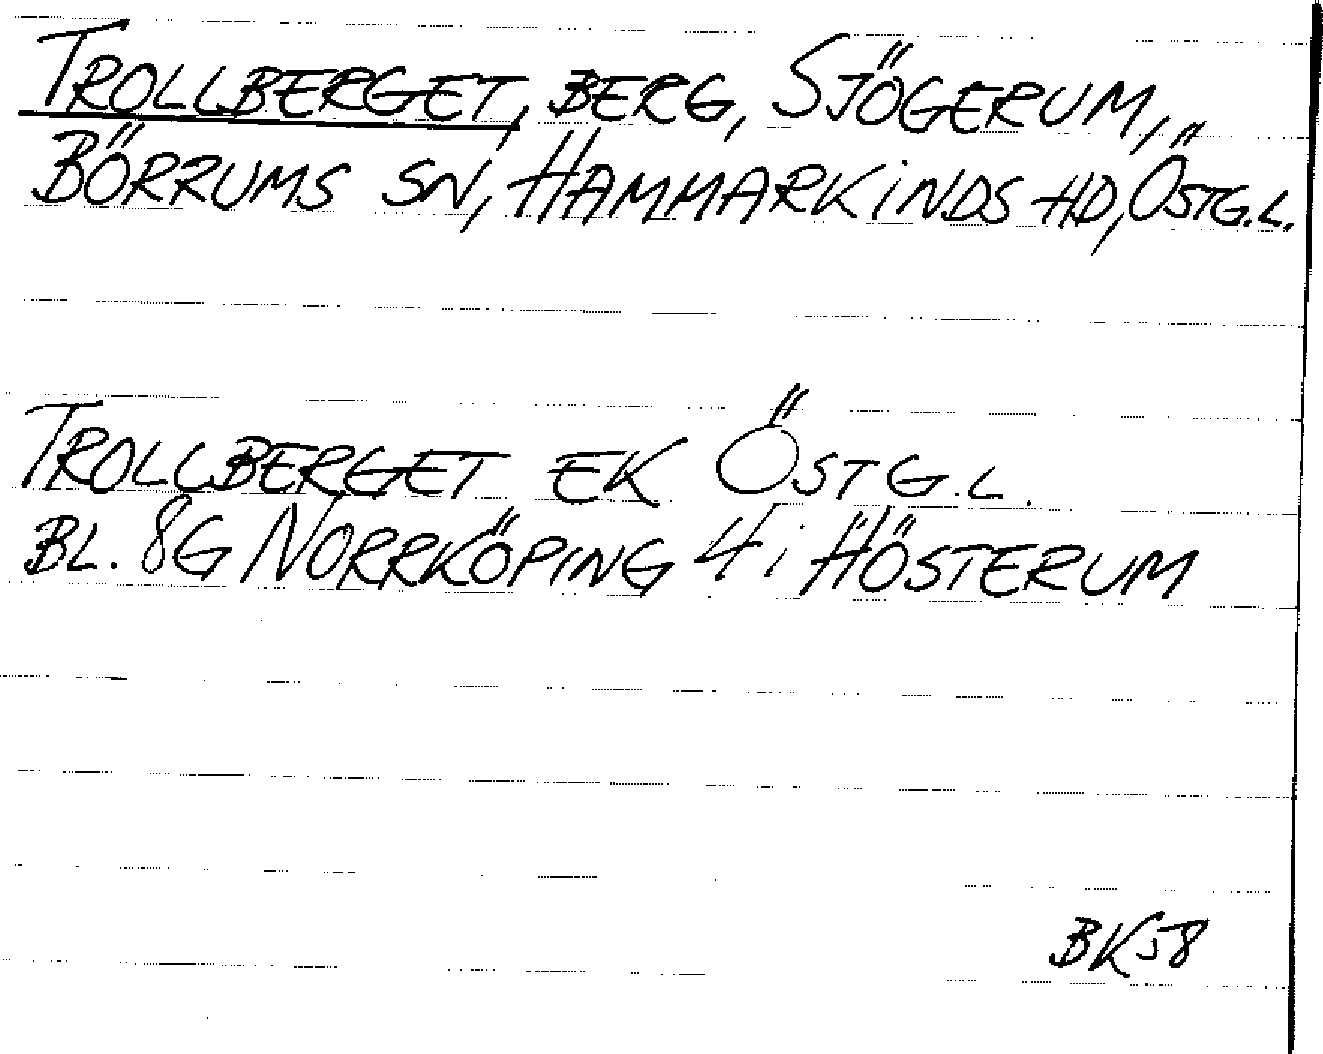 TROLLBERGET, BERG, SJÖGERUM,
BÖRRUMS SN, HAMMARKINDS HD, ÖSTG.L.
TROLLBERGET EK ÖSTG.L.
BL. 8G NORRKÖPING 4i HÖSTERUM
BK58